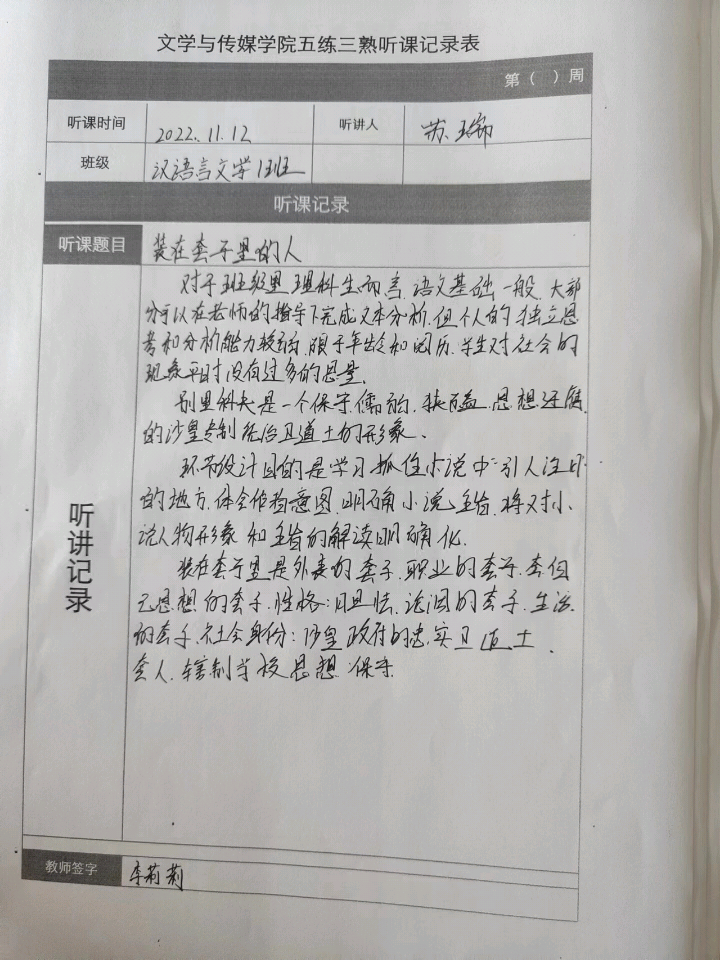 文学与传媒学院五练三熟听课记录表
第（ ）周
听课时间 2022.11.12 听讲人 苏瑞
班级 汉语言文学1班
听课记录
听课题目 装在套子里的人
听讲记录
对于班级里理科生而言，语文基础一般，大部
分可以在老师的指导下完成文本分析，但个人的独立思
考和分析能力较弱，限于年龄和阅历，学生对社会的
现象平时没有过多的思量。
别里科夫是一个保守，懦弱，狭隘，思想迂腐，
的沙皇专制统治卫道士的形象。
环节设计目的是学习抓住小说中引人注目
的地方，体会作者意图，明确小说主旨，将对小
说人物形象和主旨的解读明确化。
装在套子里是外表的套子，职业的套子，套住
思想的套子，性格：胆怯，论调的套子，生活
的套子，社会身份：沙皇政府的忠实卫道士，
套人，辖制学校思想 保守
教师签字 李莉莉